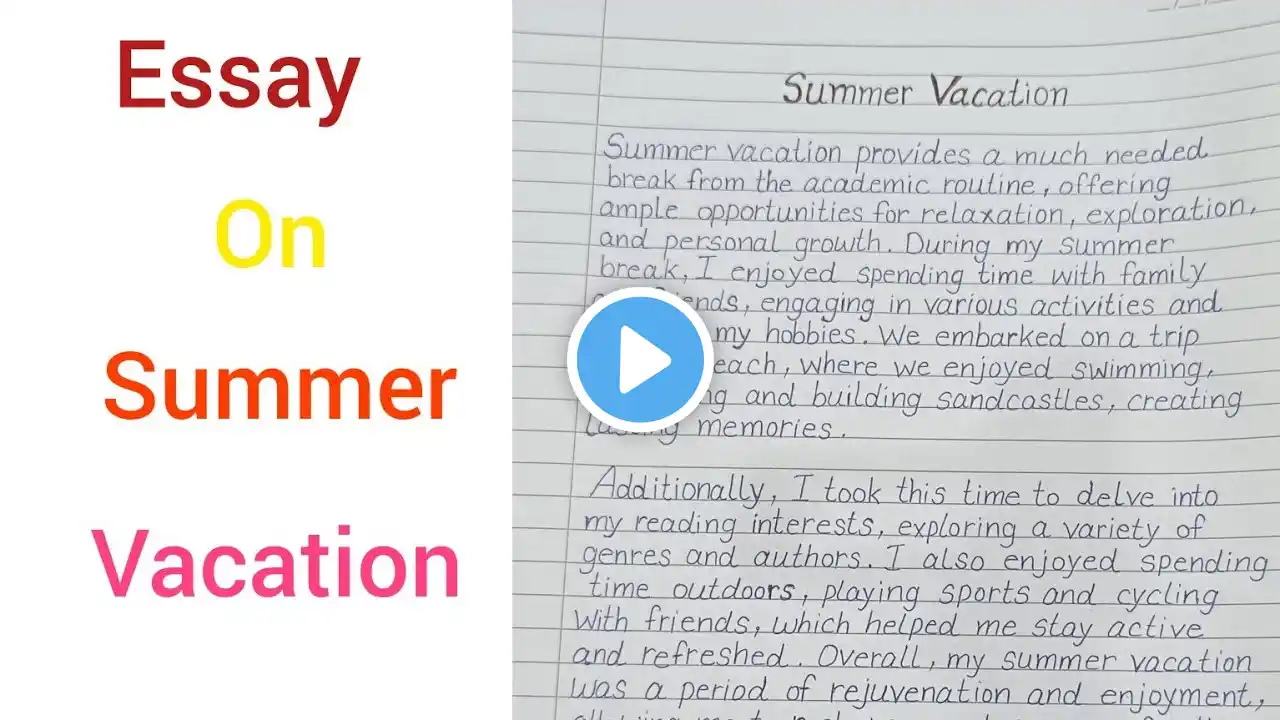 Essay
On
Summer
Vacation
Summer Vacation
Summer vacation provides a much needed
break from the academic routine, offering
ample opportunities for relaxation, exploration,
and personal growth. During my summer
break, I enjoyed spending time with family
engaging in various activities and
my hobbies. We embarked on a trip
where we enjoyed swimming,
and building sandcastles, creating
memories.
Additionally, I took this time to delve into
my reading interests, exploring a variety of
genres and authors. I also enjoyed spending
time outdoors, playing sports and cycling
with friends, which helped me stay active
and refreshed. Overall, my summer vacation
was a period of rejuvenation and enjoyment,